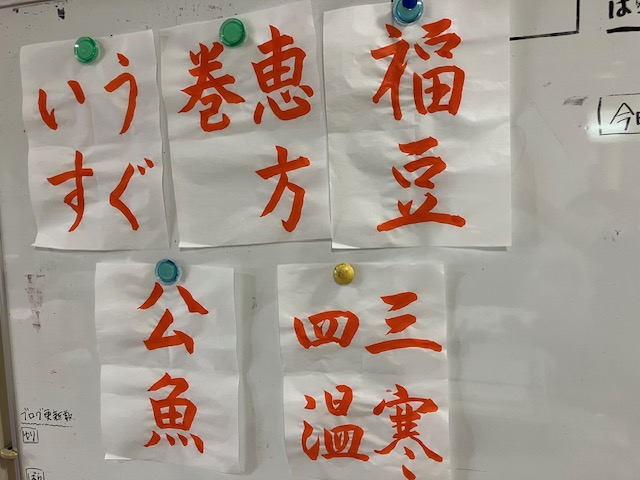 福豆
恵方
巻
うぐ
いす
三寒
四温
公魚
ブログ更新
今